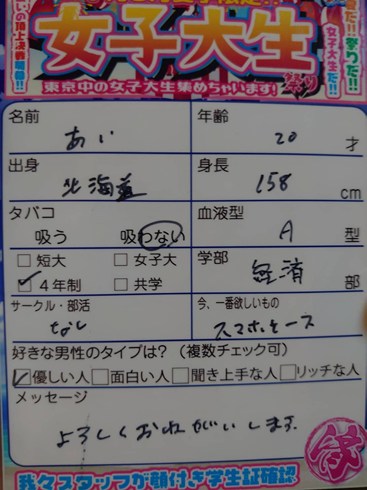 女子大生
東京中の女子大生集めちゃいます!
名前 あい
年齢 20 才
出身 北海道
身長 158 cm
タバコ 吸う 吸わない
血液型 A 型
□ 短大 □ 女子大
☑ 4年制 □ 共学
学部 経済 部
サークル・部活 なし
今、一番欲しいもの スマホケース
好きな男性のタイプは?(複数チェック可)
☑優しい人 □面白い人 □聞き上手な人 □リッチな人
メッセージ
よろしくおねがいします。
我々スタッフが顔付き学生証確認